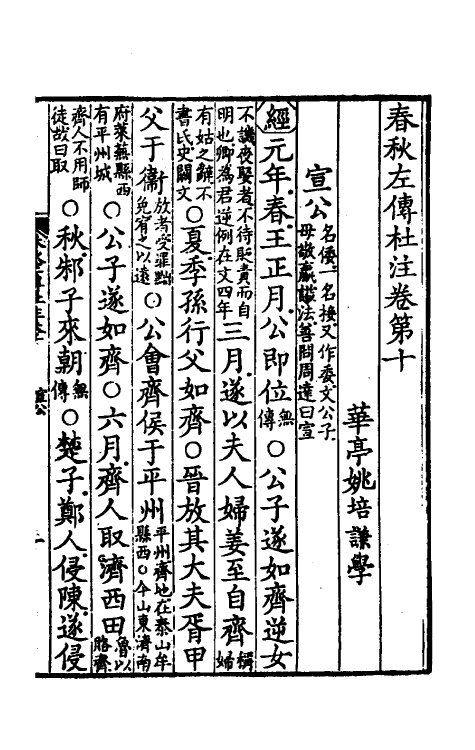 春秋左傳杜注卷第十
華亭姚培謙學
宣公名倭一名接又作委文公子母敬嬴諡法善問周達曰宣
經元年春王正月公即位無傳○公子遂如齊逆女
不譏夜娶者不待貶責而自明也卿為君逆例在文四年三月遂以夫人婦姜至自齊稱婦
有姑之辭不書氏史闕文○夏季孫行父如齊○晉放其大夫胥甲
父于衞放者受罪黜免宥之以遠○公會齊侯于平州平州齊地在泰山牟縣西○今山東濟南
府萊蕪縣西有平州城○公子遂如齊○六月齊人取濟西田魯以賂齊
齊人不用師徒故曰取○秋邾子來朝無傳○楚子鄭人侵陳遂侵
宣公
一